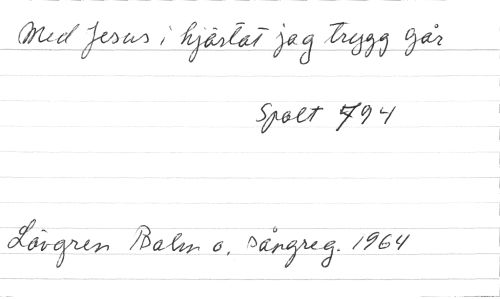 Med Jesus i hjärtat jag trygg går
Spalt 794
Lövgren Psalm o. sångreg. 1964